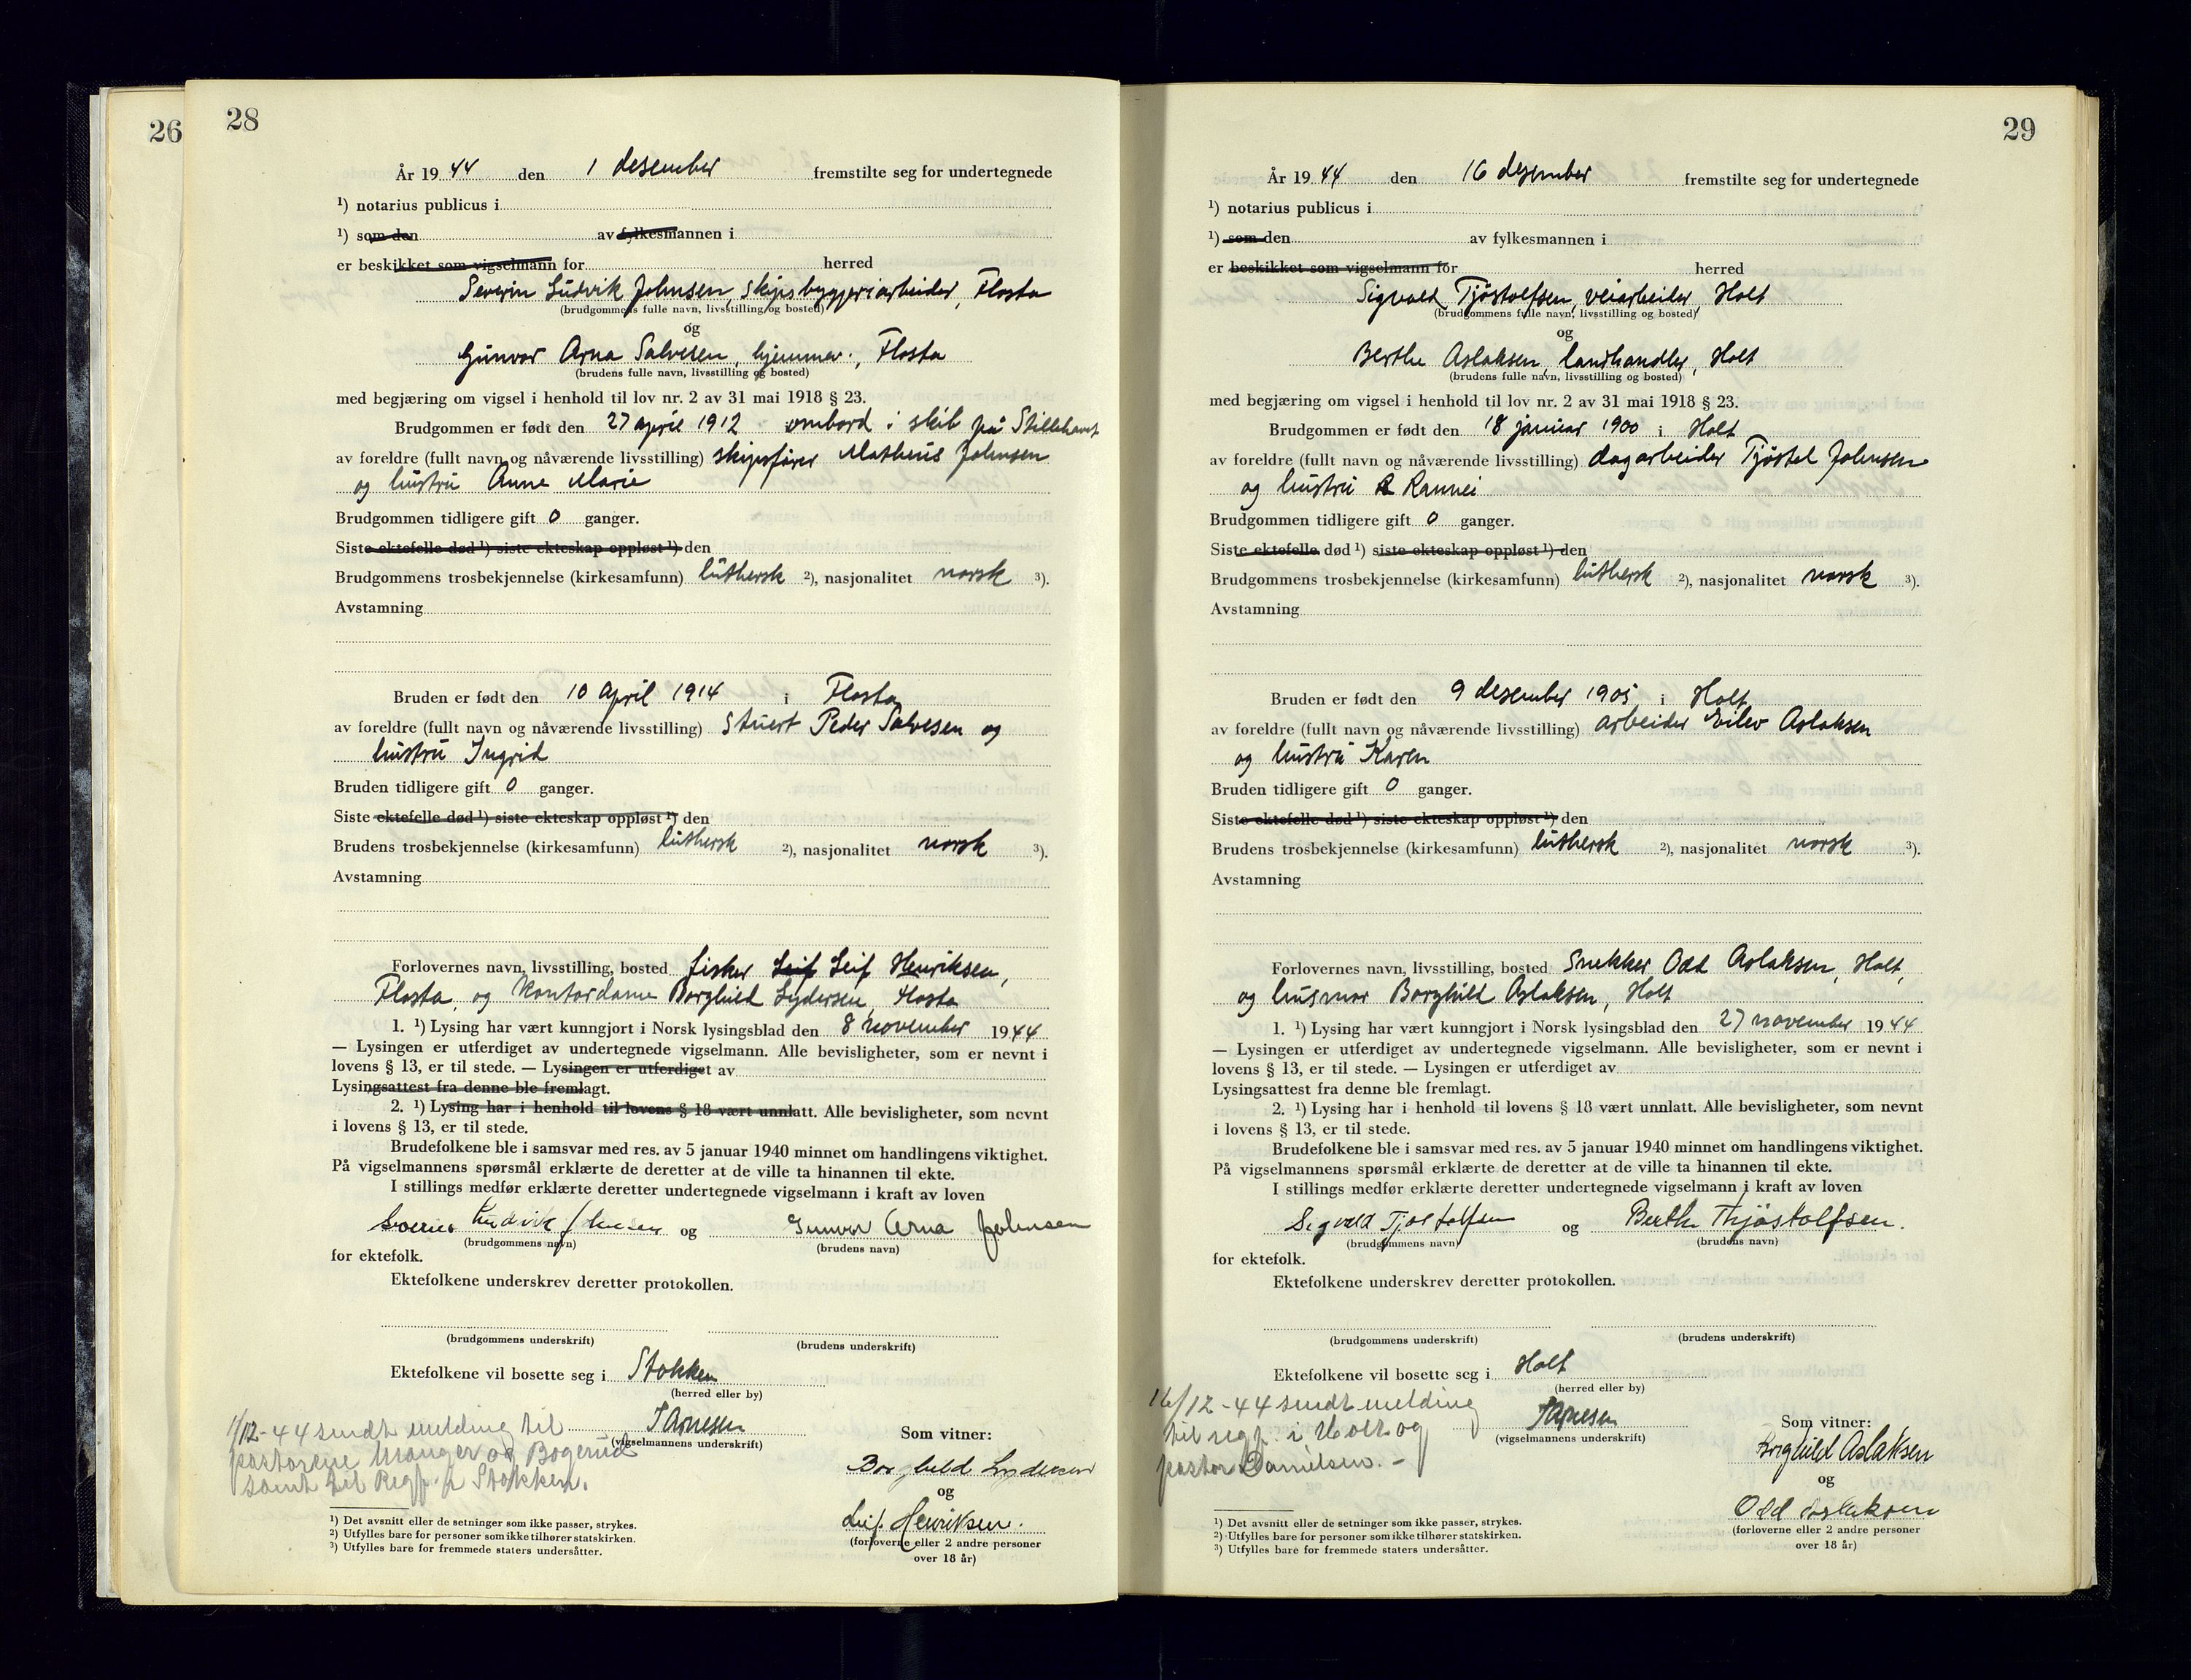 26
28
År 19 44 den 1 desember fremstilte seg for undertegnede
¹) notarius publicus i
¹) som den av fylkesmannen i
er beskikket som vigselmann for herred
Severin Ludvik Johnsen, skipsbyggeriarbeider, Flosta
(brudgommens fulle navn, livsstilling og bosted)
og
Gunvor Arna Salvesen, hjemmev., Flosta
(brudens fulle navn, livsstilling og bosted)
med begjæring om vigsel i henhold til lov nr. 2 av 31 mai 1918 § 23.
Brudgommen er født den 27 april 1912 ombord i skib på Stillehavet
av foreldre (fullt navn og nåværende livsstilling) skipsfører Matheus Johnsen
og hustru Anne Marie
Brudgommen tidligere gift 0 ganger.
Siste ektefelle død ¹) siste ekteskap oppløst ¹) den
Brudgommens trosbekjennelse (kirkesamfunn) luthersk ²), nasjonalitet norsk ³).
Avstamning
Bruden er født den 10 april 1914 i Flosta
av foreldre (fullt navn og nåværende livsstilling) Stuert Peder Salvesen og
hustru Ingrid
Bruden tidligere gift 0 ganger.
Siste ektefelle død ¹) siste ekteskap oppløst ¹) den
Brudens trosbekjennelse (kirkesamfunn) luthersk ²), nasjonalitet norsk ³).
Avstamning
Forlovernes navn, livsstilling, bosted fisker Leif Leif Henriksen,
Flosta, og Kontordame Borghild Lydersen, Flosta
1. ¹) Lysing har vært kunngjort i Norsk lysingsblad den 8 november 1944
— Lysingen er utferdiget av undertegnede vigselmann. Alle bevisligheter, som er nevnt i
lovens § 13, er til stede. — Lysingen er utferdiget av
Lysingsattest fra denne ble fremlagt.
2. ¹) Lysing har i henhold til lovens § 18 vært unnlatt. Alle bevisligheter, som nevnt
i lovens § 13, er til stede.
Brudefolkene ble i samsvar med res. av 5 januar 1940 minnet om handlingens viktighet.
På vigselmannens spørsmål erklærte de deretter at de ville ta hinannen til ekte.
I stillings medfør erklærte deretter undertegnede vigselmann i kraft av loven
Severin Ludvik Johnsen og Gunvor Arna Johnsen
(brudgommens navn) (brudens navn)
for ektefolk.
Ektefolkene underskrev deretter protokollen.
(brudgommens underskrift) (brudens underskrift)
Ektefolkene vil bosette seg i Stokken
(herred eller by)
1/12-44 sendt melding til
pastorene Manger og Bogerud
samt til Regf. i Stokken.
(vigselmannens underskrift)
Som vitner:
Borghild Lydersen
og
Leif Henriksen.
(forloverne eller 2 andre personer
over 18 år)
¹) Det avsnitt eller de setninger som ikke passer, strykes.
²) Utfylles bare for personer som ikke tilhører statskirken.
³) Utfylles bare for fremmede staters undersåtter.
29
År 19 44 den 16 desember fremstilte seg for undertegnede
¹) notarius publicus i
¹) som den av fylkesmannen i
er beskikket som vigselmann for herred
Sigvald Tjøstolfsen, veiarbeider, Holt
(brudgommens fulle navn, livsstilling og bosted)
og
Berthe Aslaksen, landhandler, Holt
(brudens fulle navn, livsstilling og bosted)
med begjæring om vigsel i henhold til lov nr. 2 av 31 mai 1918 § 23.
Brudgommen er født den 18 januar 1900 i Holt
av foreldre (fullt navn og nåværende livsstilling) dagarbeider Tjøstol Johnsen
og hustru R Rannei
Brudgommen tidligere gift 0 ganger.
Siste ektefelle død ¹) siste ekteskap oppløst ¹) den
Brudgommens trosbekjennelse (kirkesamfunn) luthersk ²), nasjonalitet norsk ³).
Avstamning
Bruden er født den 9 desember 1905 i Holt
av foreldre (fullt navn og nåværende livsstilling) arbeider Eilev Aslaksen
og hustru Karen
Bruden tidligere gift 0 ganger.
Siste ektefelle død ¹) siste ekteskap oppløst ¹) den
Brudens trosbekjennelse (kirkesamfunn) luthersk ²), nasjonalitet norsk ³).
Avstamning
Forlovernes navn, livsstilling, bosted Snekker Odd Aslaksen, Holt,
og husmor Borghild Aslaksen, Holt
1. ¹) Lysing har vært kunngjort i Norsk lysingsblad den 27 november 1944
— Lysingen er utferdiget av undertegnede vigselmann. Alle bevisligheter, som er nevnt i
lovens § 13, er til stede. — Lysingen er utferdiget av
Lysingsattest fra denne ble fremlagt.
2. ¹) Lysing har i henhold til lovens § 18 vært unnlatt. Alle bevisligheter, som nevnt
i lovens § 13, er til stede.
Brudefolkene ble i samsvar med res. av 5 januar 1940 minnet om handlingens viktighet.
På vigselmannens spørsmål erklærte de deretter at de ville ta hinannen til ekte.
I stillings medfør erklærte deretter undertegnede vigselmann i kraft av loven
Sigvald Tjøstolfsen og Berthe Thjøstolfsen.
(brudgommens navn) (brudens navn)
for ektefolk.
Ektefolkene underskrev deretter protokollen.
(brudgommens underskrift) (brudens underskrift)
Ektefolkene vil bosette seg i Holt
(herred eller by)
16/12-44 sendt melding
til regf. i Holt og
pastor Danielsen. -
(vigselmannens underskrift)
Som vitner:
Borghild Aslaksen
og
Odd Aslaksen
(forloverne eller 2 andre personer
over 18 år)
¹) Det avsnitt eller de setninger som ikke passer, strykes.
²) Utfylles bare for personer som ikke tilhører statskirken.
³) Utfylles bare for fremmede staters undersåtter.